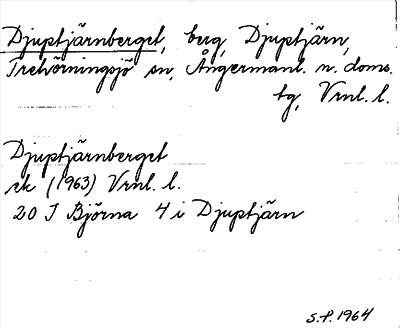 Djuptjärnberget, berg, Djuptjärn,
Trehörningsjö sn, Ångermanl. n. doms.
tg, Vrnl. l.
Djuptjärnberget
ek (1963) Vrnl. l.
20 J Björna 4 i Djuptjärn
S.P. 1964